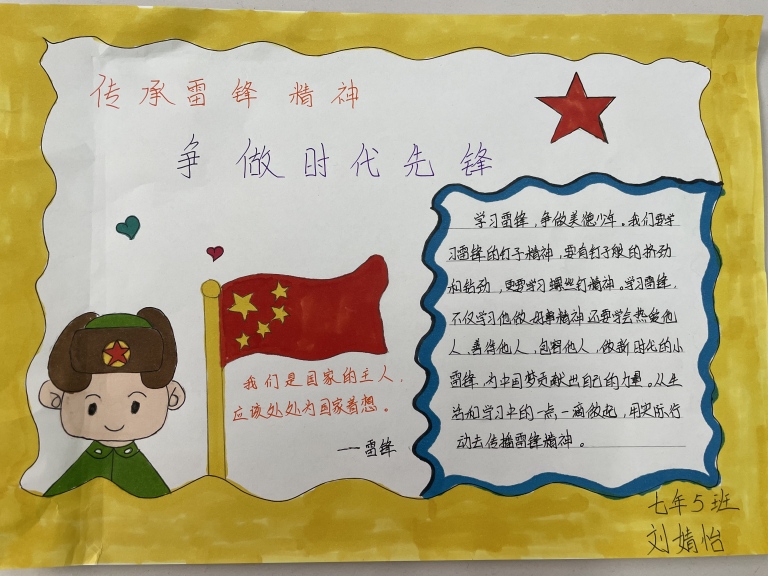 传承雷锋精神
争做时代先锋
学习雷锋，争做美德少年。我们要学
习雷锋的钉子精神，要有钉子般的挤劲
和钻劲，更要学习螺丝钉精神。学习雷锋，
不仅学习他做好事精神还要学会热爱他
人，善待他人，包容他人，做新时代的小
雷锋，为中国梦贡献出自己的力量。从生
活和学习中的一点一滴做起，用实际行
动去传播雷锋精神。
我们是国家的主人，
应该处处为国家着想。
——雷锋
七年5班
刘婧怡